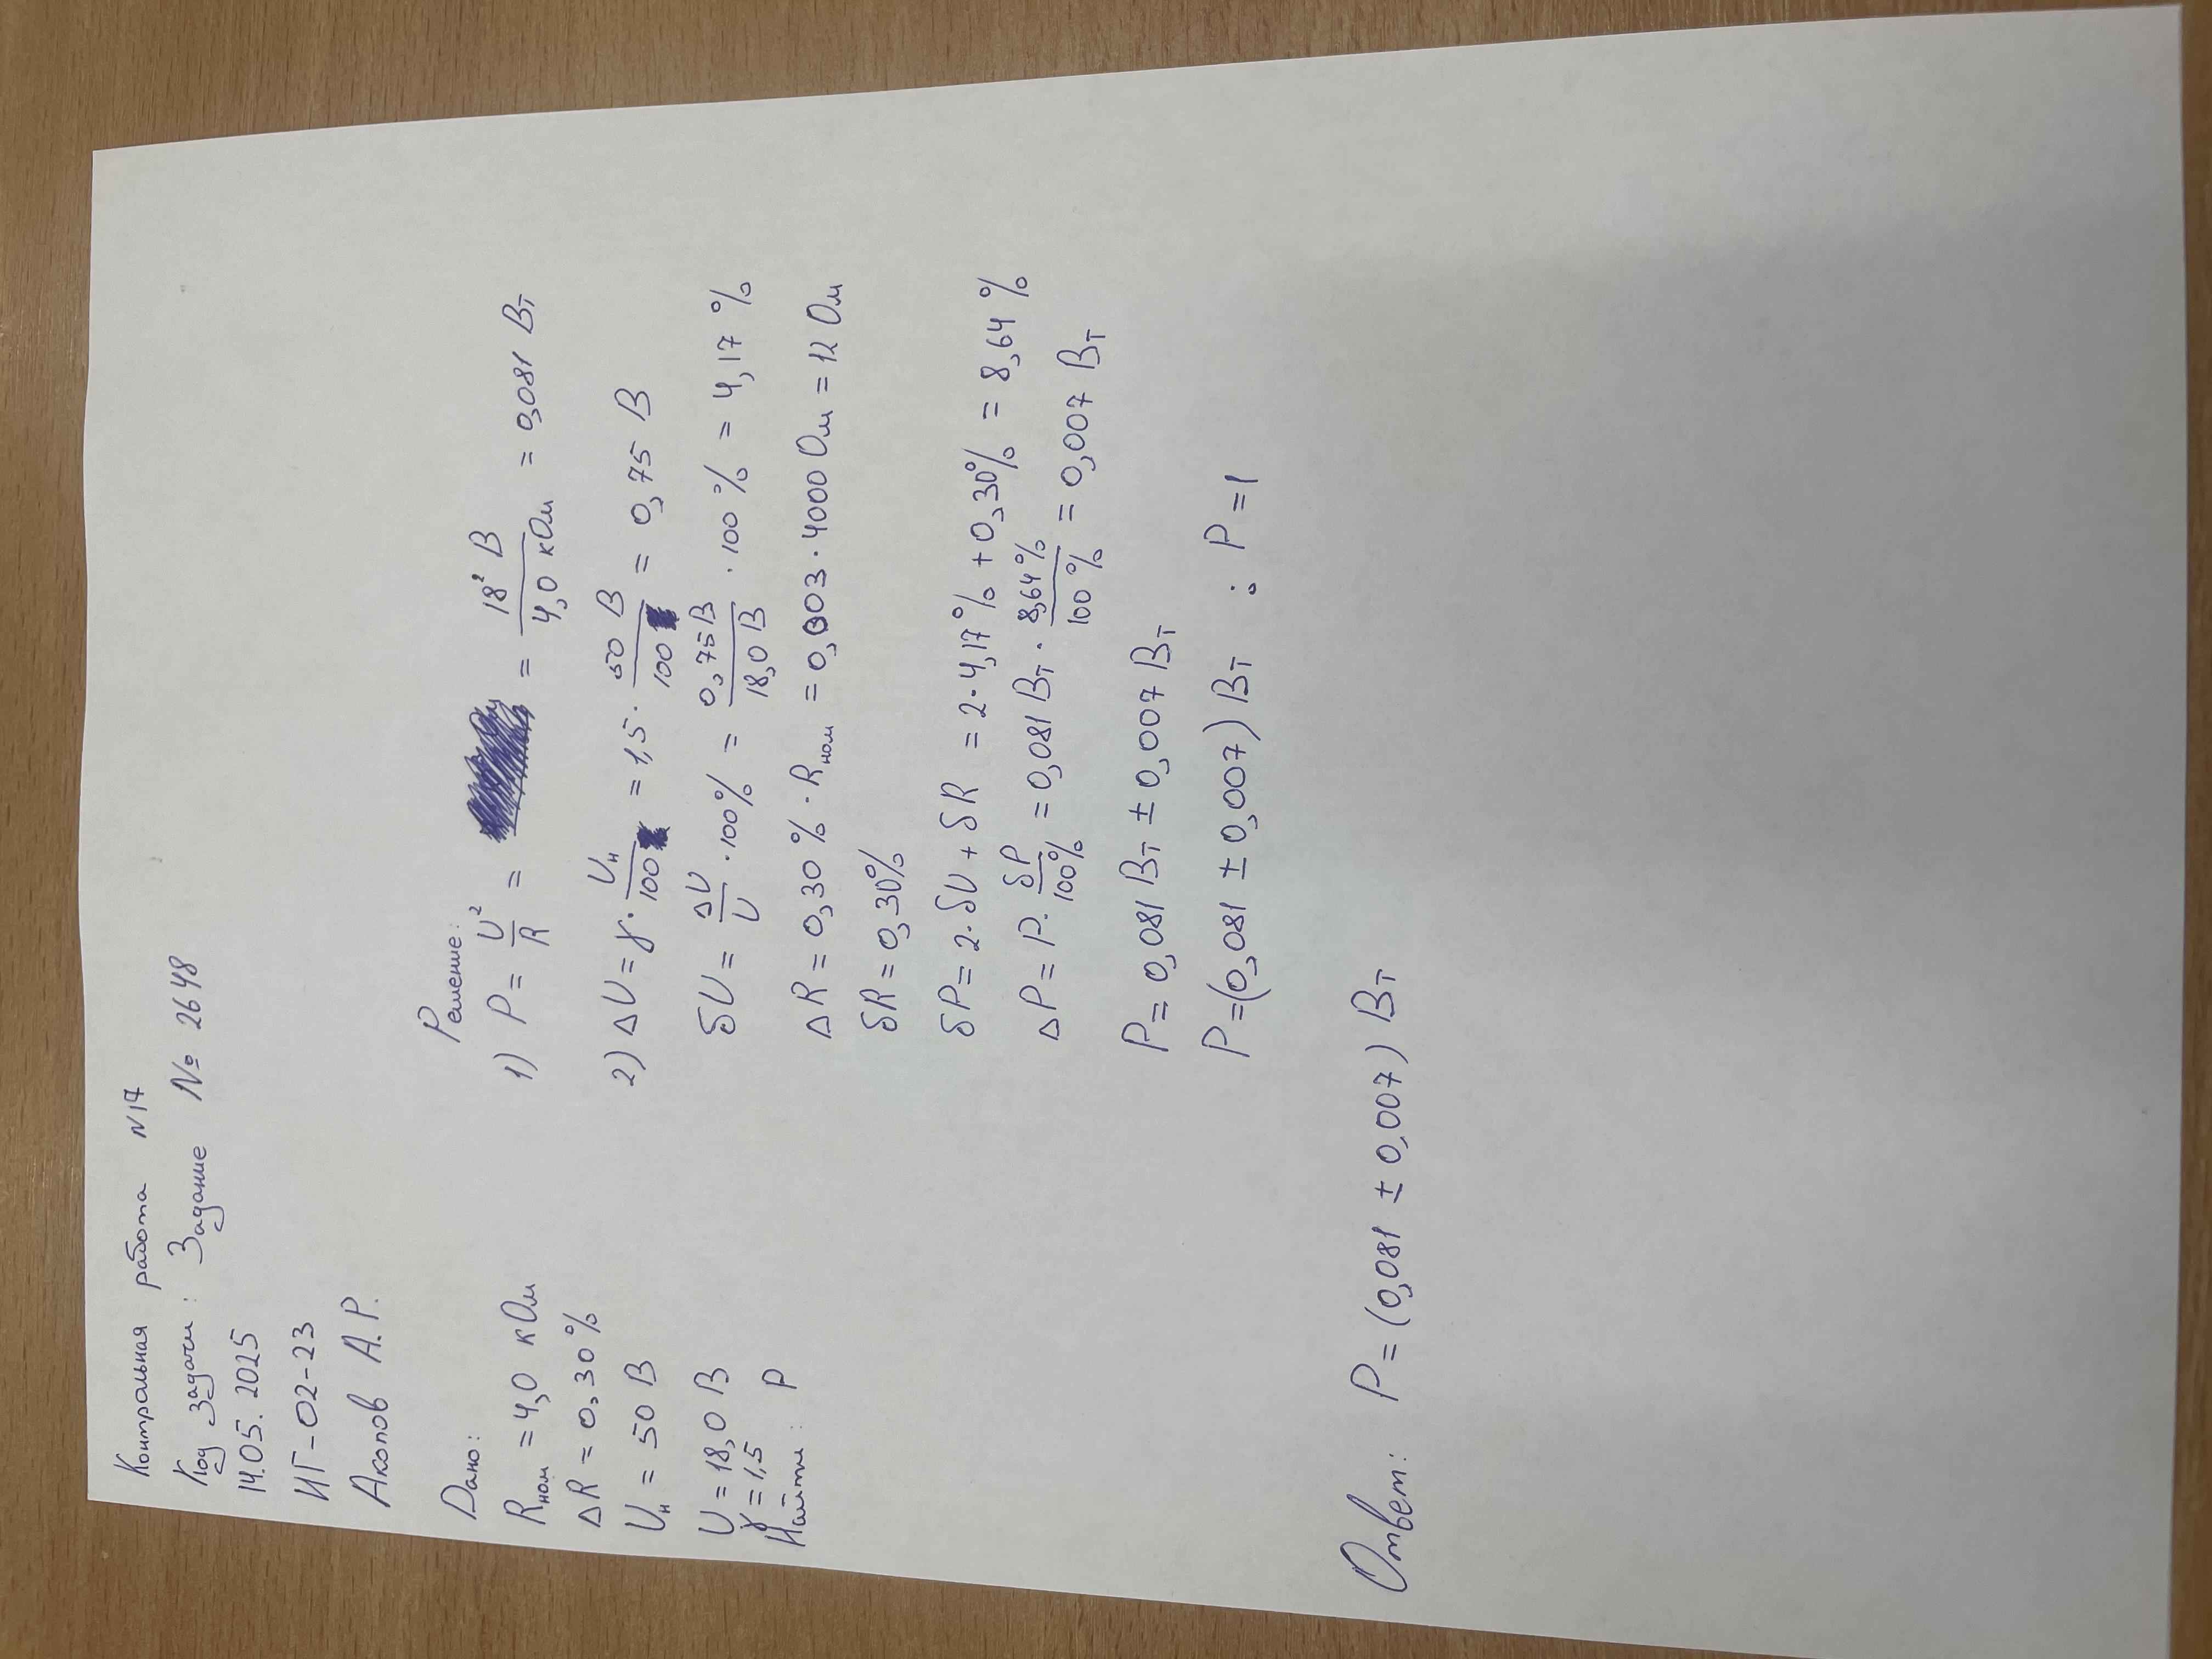 Контрольная работа №17
Код задачи: Задание № 2648
14.05.2025
ИГ-02-23
Акопов А.Р.
Дано:
Rном = 4,0 кОм
ΔR = 0,30%
Uн = 50 В
U = 18,0 В
γ = 1,5
Найти: P
Решение:
1) P = U²/R = = 18² В/4,0 кОм = 0,081 Вт
2) ΔU = γ · Uн/100 = 1,5 · 50 В/100 = 0,75 В
δU = ΔU/U · 100% = 0,75В/18,0 В · 100% = 4,17 %
ΔR = 0,30 % · Rном = 0,003 · 4000 Ом = 12 Ом
δR = 0,30%
δP = 2·δU + δR = 2·4,17% + 0,30% = 8,64 %
ΔP = P · δP/100% = 0,081 Вт · 8,64%/100% = 0,007 Вт
P = 0,081 Вт ± 0,007 Вт
P = (0,081 ± 0,007) Вт ; P = 1
Ответ: P = (0,081 ± 0,007) Вт